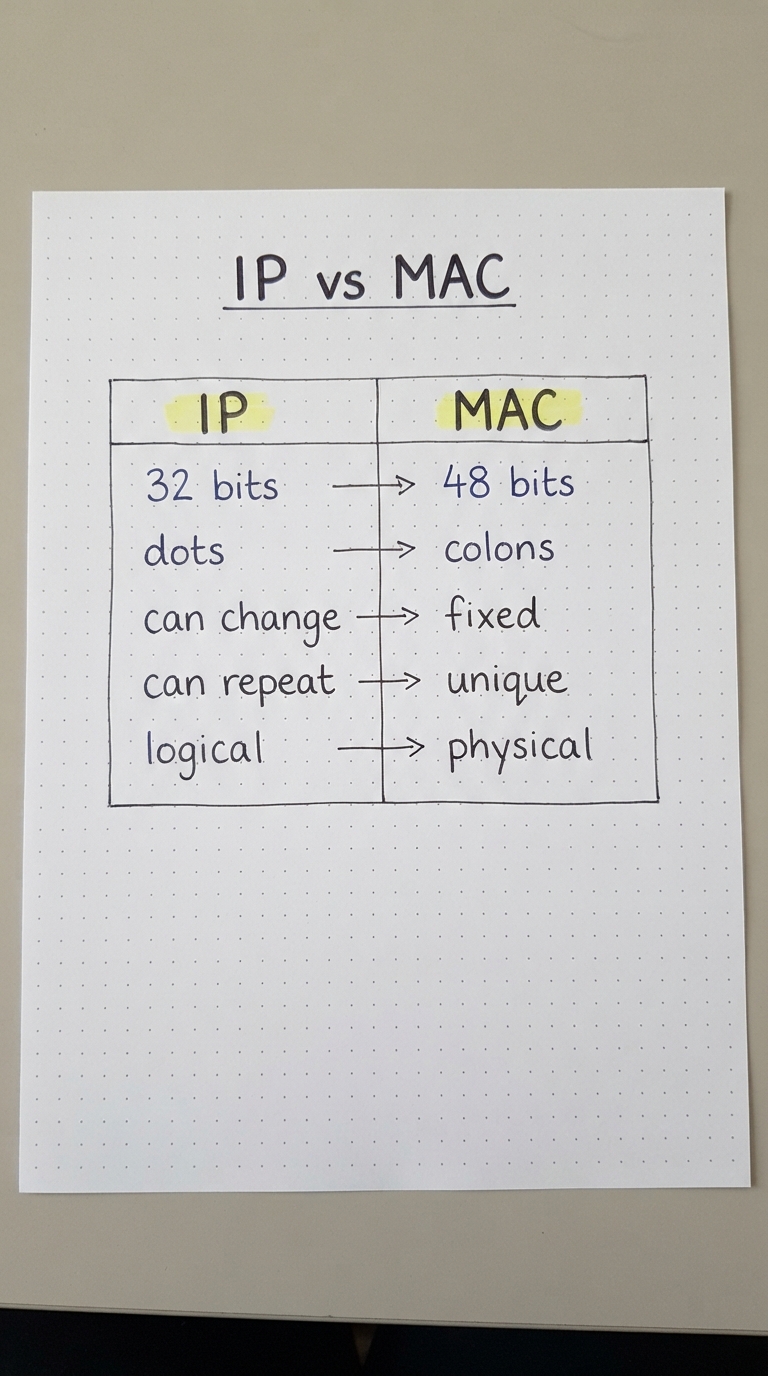 IP vs MAC
IP MAC
32 bits → 48 bits
dots → colons
can change → fixed
can repeat → unique
logical → physical